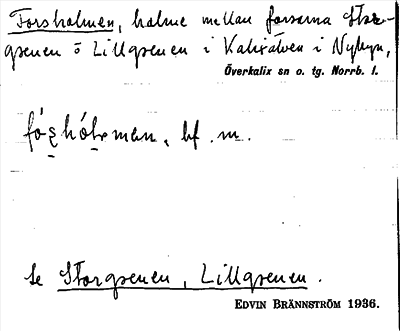 Forsholmen, holme mellan forsarna Stor-
grenen o Lillgrenen i Kalixälven i Nybyn,
Överkalix sn o. tg. Norrb. l.
bf. m.
Se Storgrenen, Lillgrenen.
EDVIN BRÄNNSTRÖM 1936.